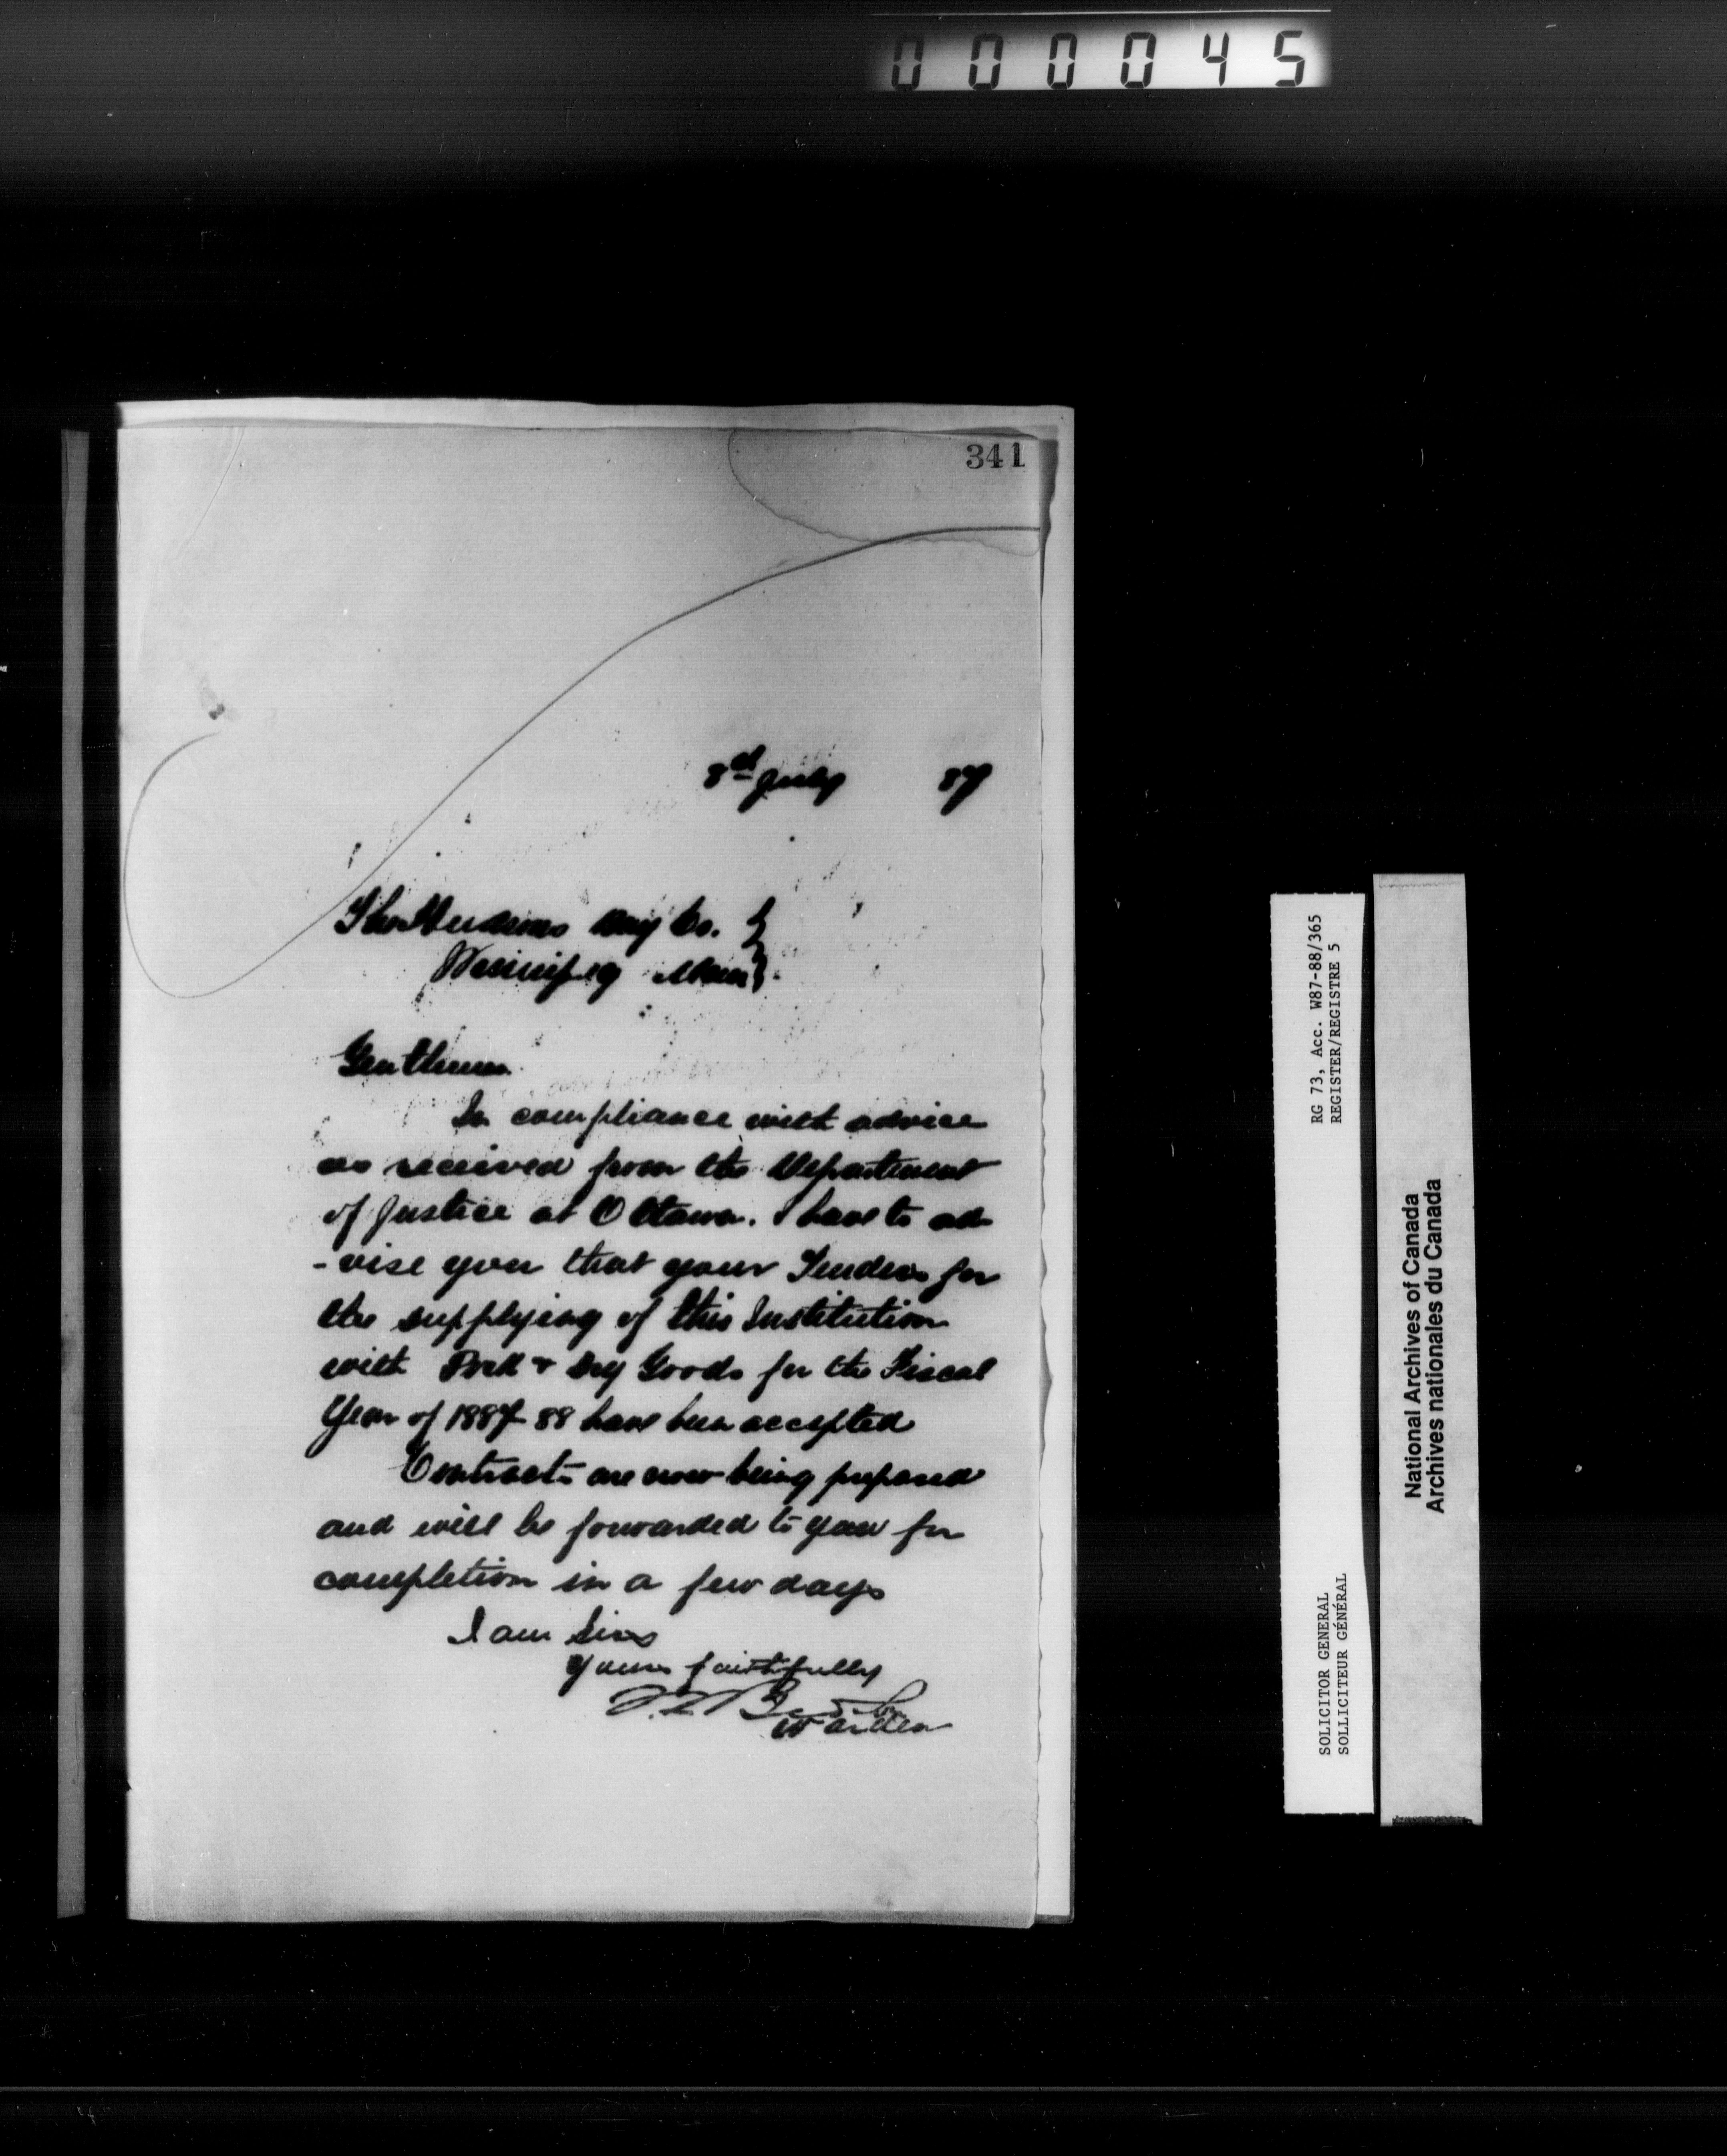 000045
341
8th July 87
The Hudsons Bay Co.
Winnipeg Man
Gentlemen
In compliance with advice
as received from the Department
of Justice at Ottawa. I have to ad
-vise you that your Tenders for
the supplying of this Institution
with Pork & Dry Goods for the Fiscal
Year of 1887-88 have been accepted
Contracts are now being prepared
and will be forwarded to you for
completion in a few days
I am Sirs
Yours faithfully
Warden
RG 73, Acc. W87-88/365
REGISTER/REGISTRE 5
SOLICITOR GENERAL
SOLLICITEUR GÉNÉRAL
National Archives of Canada
Archives nationales du Canada